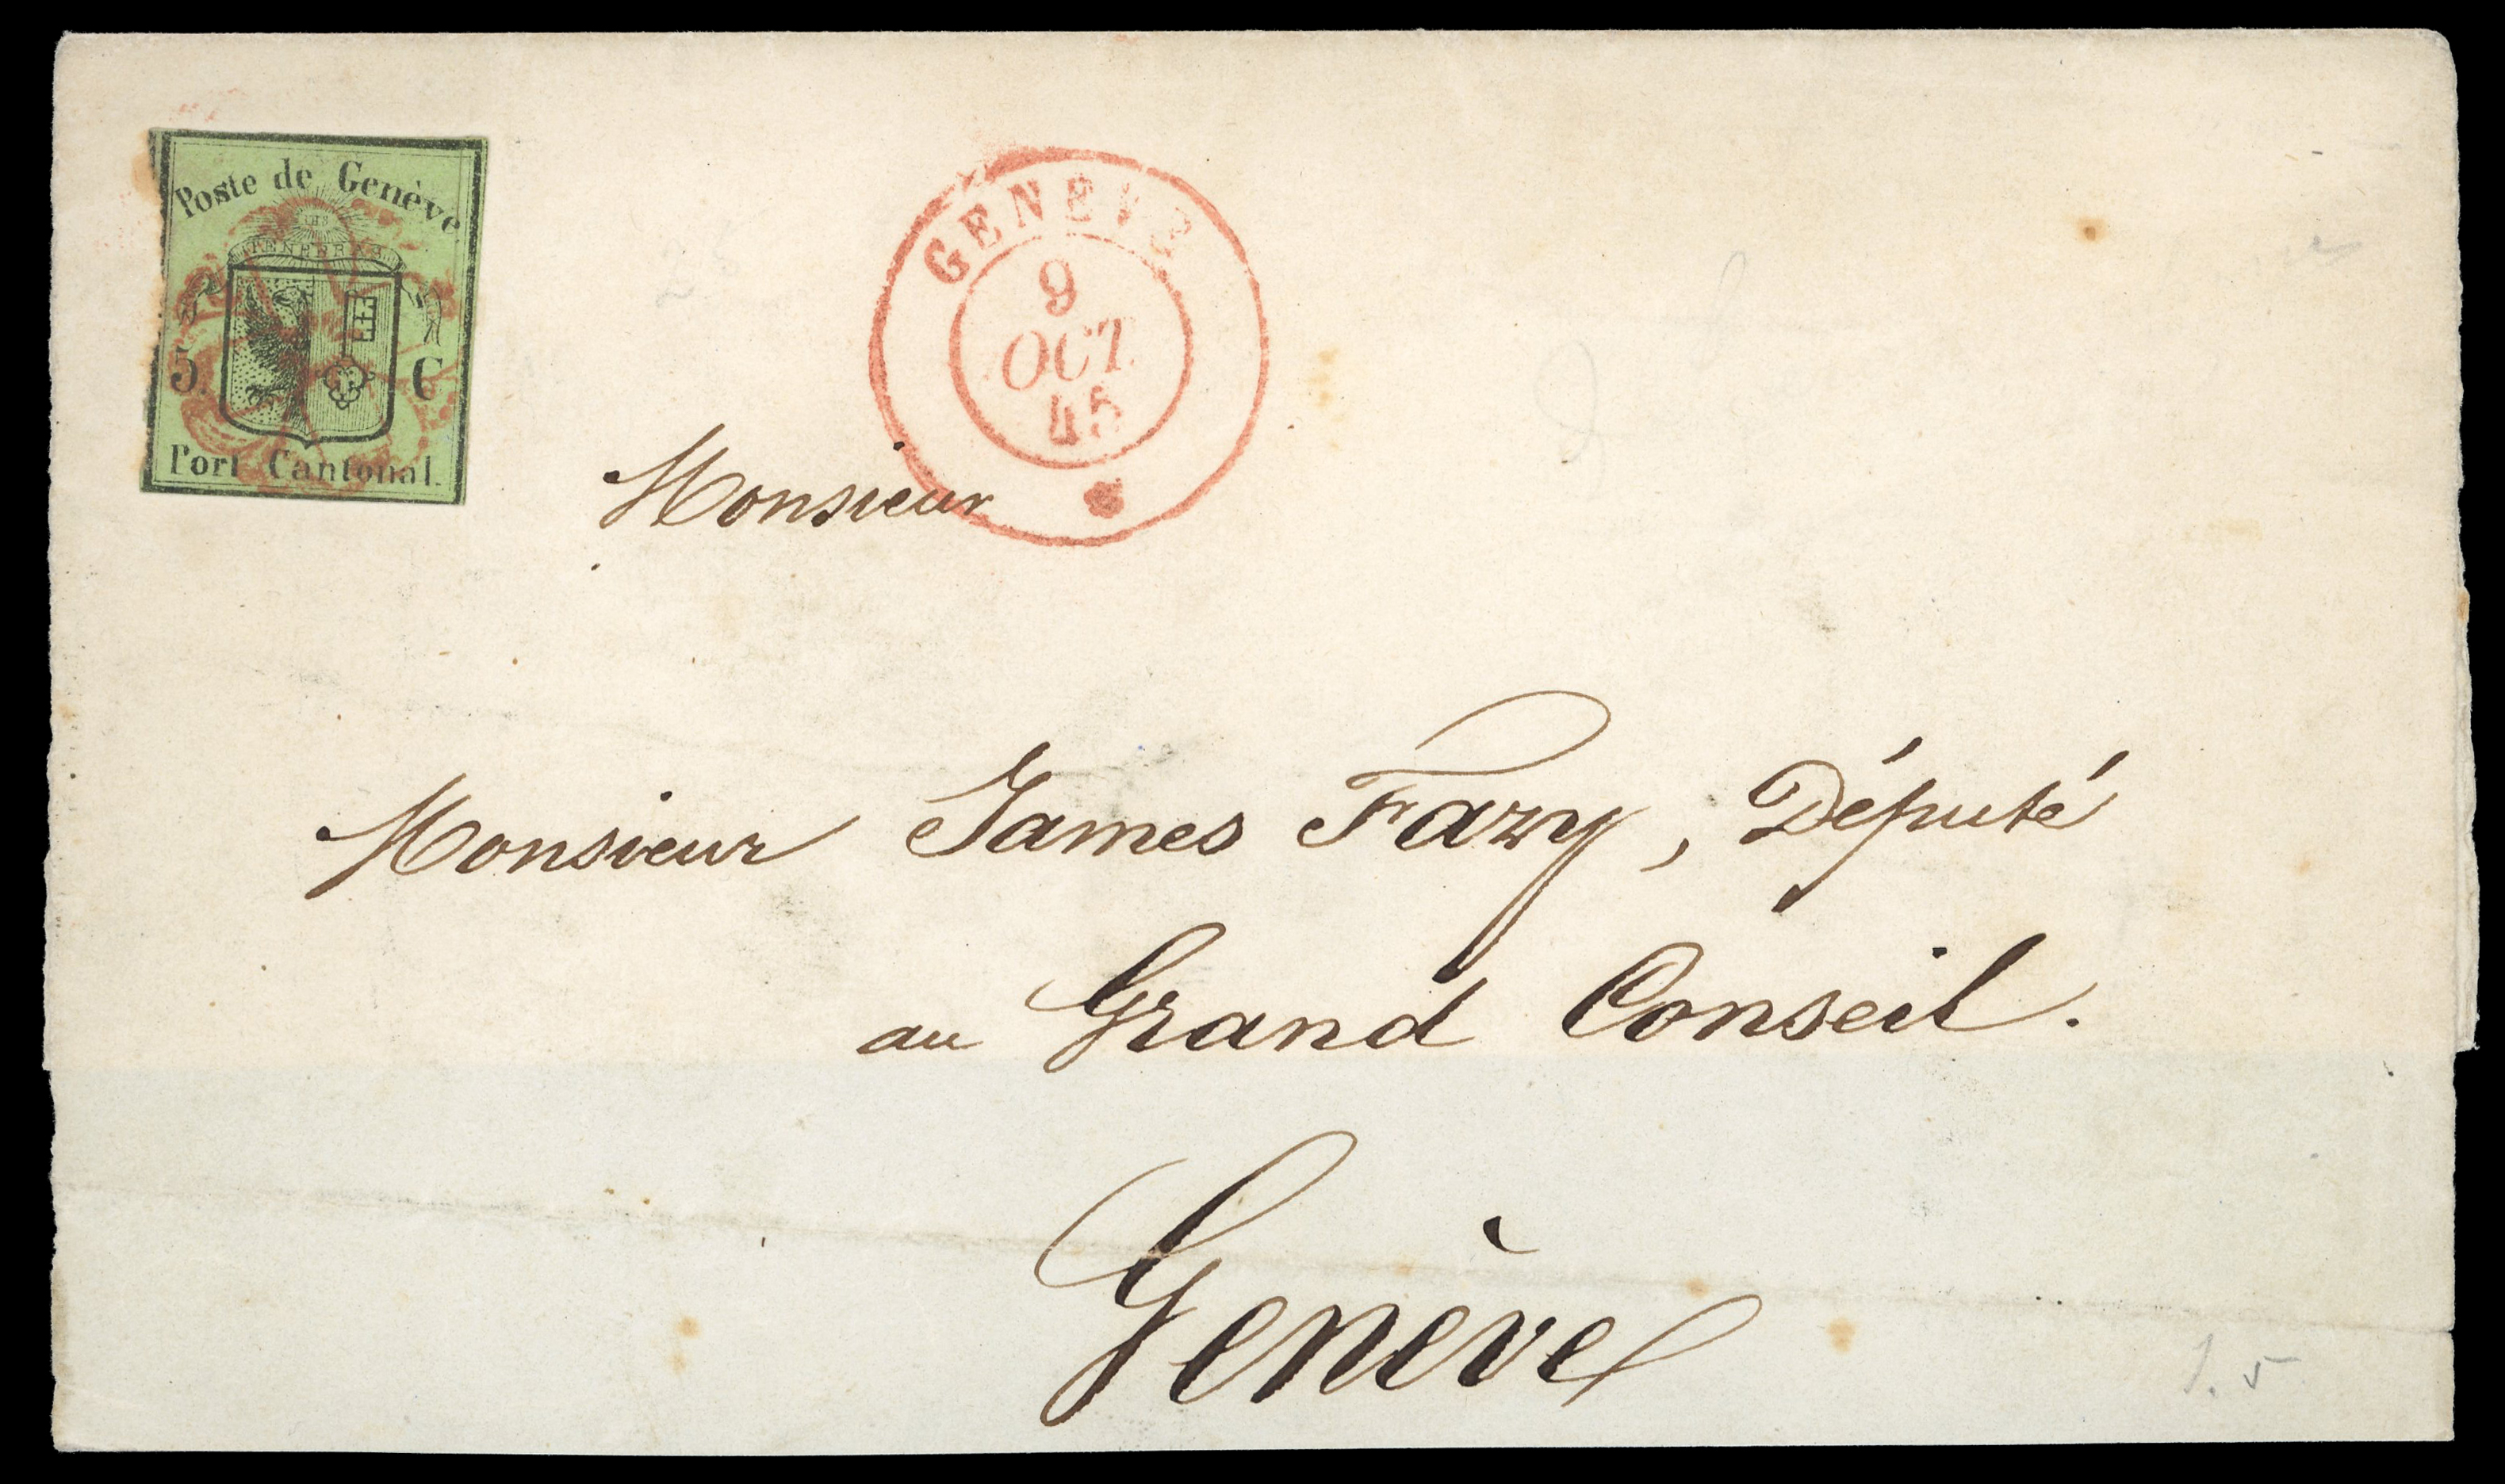 Poste de Genève
5. C
Port Cantonal.
GENÈVE
9
OCT
45
Monsieur
Monsieur James Fazy, Député
au Grand Conseil.
Genève
1. 5